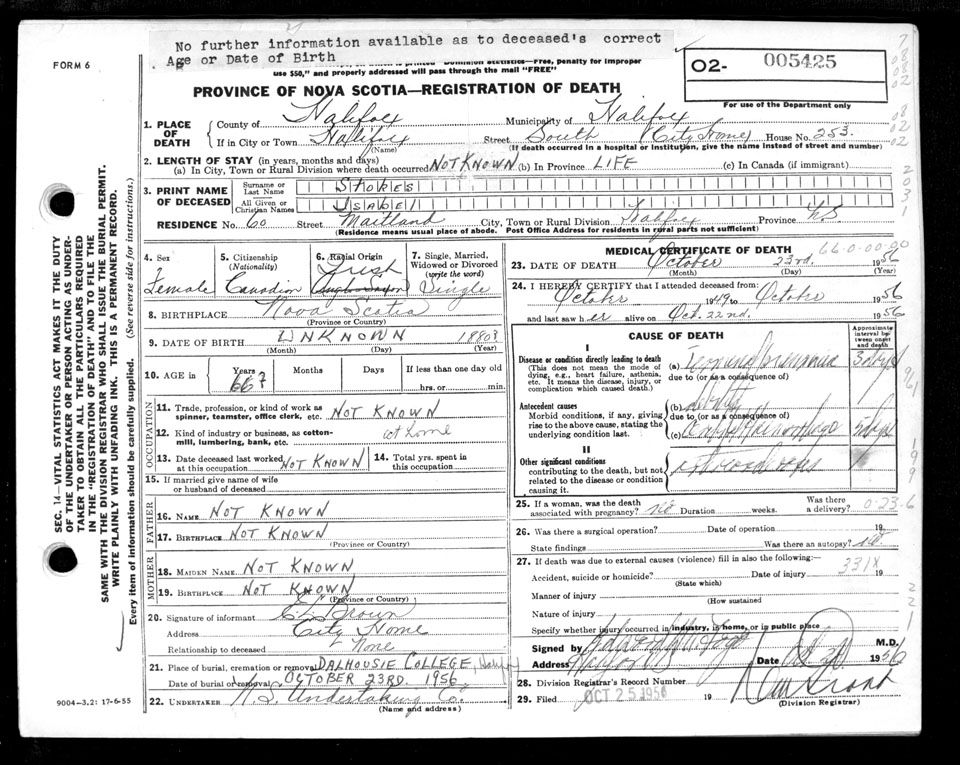 No further information available as to deceased's correct
Age or Date of Birth
FORM 6
use $50," and properly addressed will pass through the mail "FREE"
O2- 005425
For use of the Department only
PROVINCE OF NOVA SCOTIA—REGISTRATION OF DEATH
1. PLACE OF DEATH
County of Halifax Municipality of Halifax
If in City or Town Halifax Street South (City Home) House No. 253.
(Name) (If death occurred in a hospital or institution, give the name instead of street and number)
2. LENGTH OF STAY (in years, months and days)
(a) In City, Town or Rural Division where death occurred NOT KNOWN (b) In Province LIFE (c) In Canada (if immigrant)
3. PRINT NAME OF DECEASED
Surname or Last Name STOKES
All Given or Christian Names ISABEL
RESIDENCE No. 60 Street Maitland City, Town or Rural Division Halifax Province N.S.
(Residence means usual place of abode. Post Office Address for residents in rural parts not sufficient)
4. Sex Female
5. Citizenship (Nationality) Canadian
6. Racial Origin Irish
7. Single, Married, Widowed or Divorced (write the word) Single
8. BIRTHPLACE Nova Scotia
(Province or Country)
9. DATE OF BIRTH UNKNOWN 1880?
(Month) (Day) (Year)
10. AGE in Years 66? Months Days If less than one day old
hrs. or min.
OCCUPATION
11. Trade, profession, or kind of work as spinner, teamster, office clerk, etc. NOT KNOWN
12. Kind of industry or business, as cotton-mill, lumbering, bank, etc. at home
13. Date deceased last worked at this occupation NOT KNOWN
14. Total yrs. spent in this occupation
15. If married give name of wife or husband of deceased
FATHER
16. NAME NOT KNOWN
17. BIRTHPLACE NOT KNOWN
(Province or Country)
MOTHER
18. MAIDEN NAME NOT KNOWN
19. BIRTHPLACE NOT KNOWN
(Province or Country)
20. Signature of informant Brown
Address City Home
Relationship to deceased None
21. Place of burial, cremation or removal DALHOUSIE COLLEGE
Date of burial or removal OCTOBER 23RD. 1956
22. UNDERTAKER N.S. Undertaking Co.
(Name and address)
9004-3.2: 17-6-55
MEDICAL CERTIFICATE OF DEATH
66-0-00-00
23. DATE OF DEATH October 23rd. 1956
(Month) (Day) (Year)
24. I HEREBY CERTIFY that I attended deceased from:
October 1949 to October 1956
and last saw her alive on Oct. 22nd. 1956
CAUSE OF DEATH
Approximate interval between onset and death
I
Disease or condition directly leading to death
(This does not mean the mode of dying, e.g., heart failure, asthenia, etc. It means the disease, injury, or complication which caused death.)
(a) pneumonia
due to (or as a consequence of)
Antecedent causes
Morbid conditions, if any, giving rise to the above cause, stating the underlying condition last.
(b)
due to (or as a consequence of)
(c)
II
Other significant conditions
contributing to the death, but not related to the disease or condition causing it.
25. If a woman, was the death associated with pregnancy? no Duration weeks. Was there a delivery?
0-23-6
26. Was there a surgical operation? Date of operation 19
State findings Was there an autopsy? no
27. If death was due to external causes (violence) fill in also the following:—
Accident, suicide or homicide? Date of injury 19
(State which)
331X
Manner of injury
(How sustained
Nature of injury
Specify whether injury occurred in industry, in home, or in public place
Signed by M.D.
Address Date 1956
28. Division Registrar's Record Number
29. Filed OCT 25 1956 19
(Division Registrar)
SEC. 14—VITAL STATISTICS ACT MAKES IT THE DUTY
OF THE UNDERTAKER OR PERSON ACTING AS UNDER-
TAKER TO OBTAIN ALL THE PARTICULARS REQUIRED
IN THE "REGISTRATION OF DEATH" AND TO FILE THE
SAME WITH THE DIVISION REGISTRAR WHO SHALL ISSUE THE BURIAL PERMIT.
WRITE PLAINLY WITH UNFADING INK. THIS IS A PERMANENT RECORD.
Every item of information should be carefully supplied. (See reverse side for instructions.)